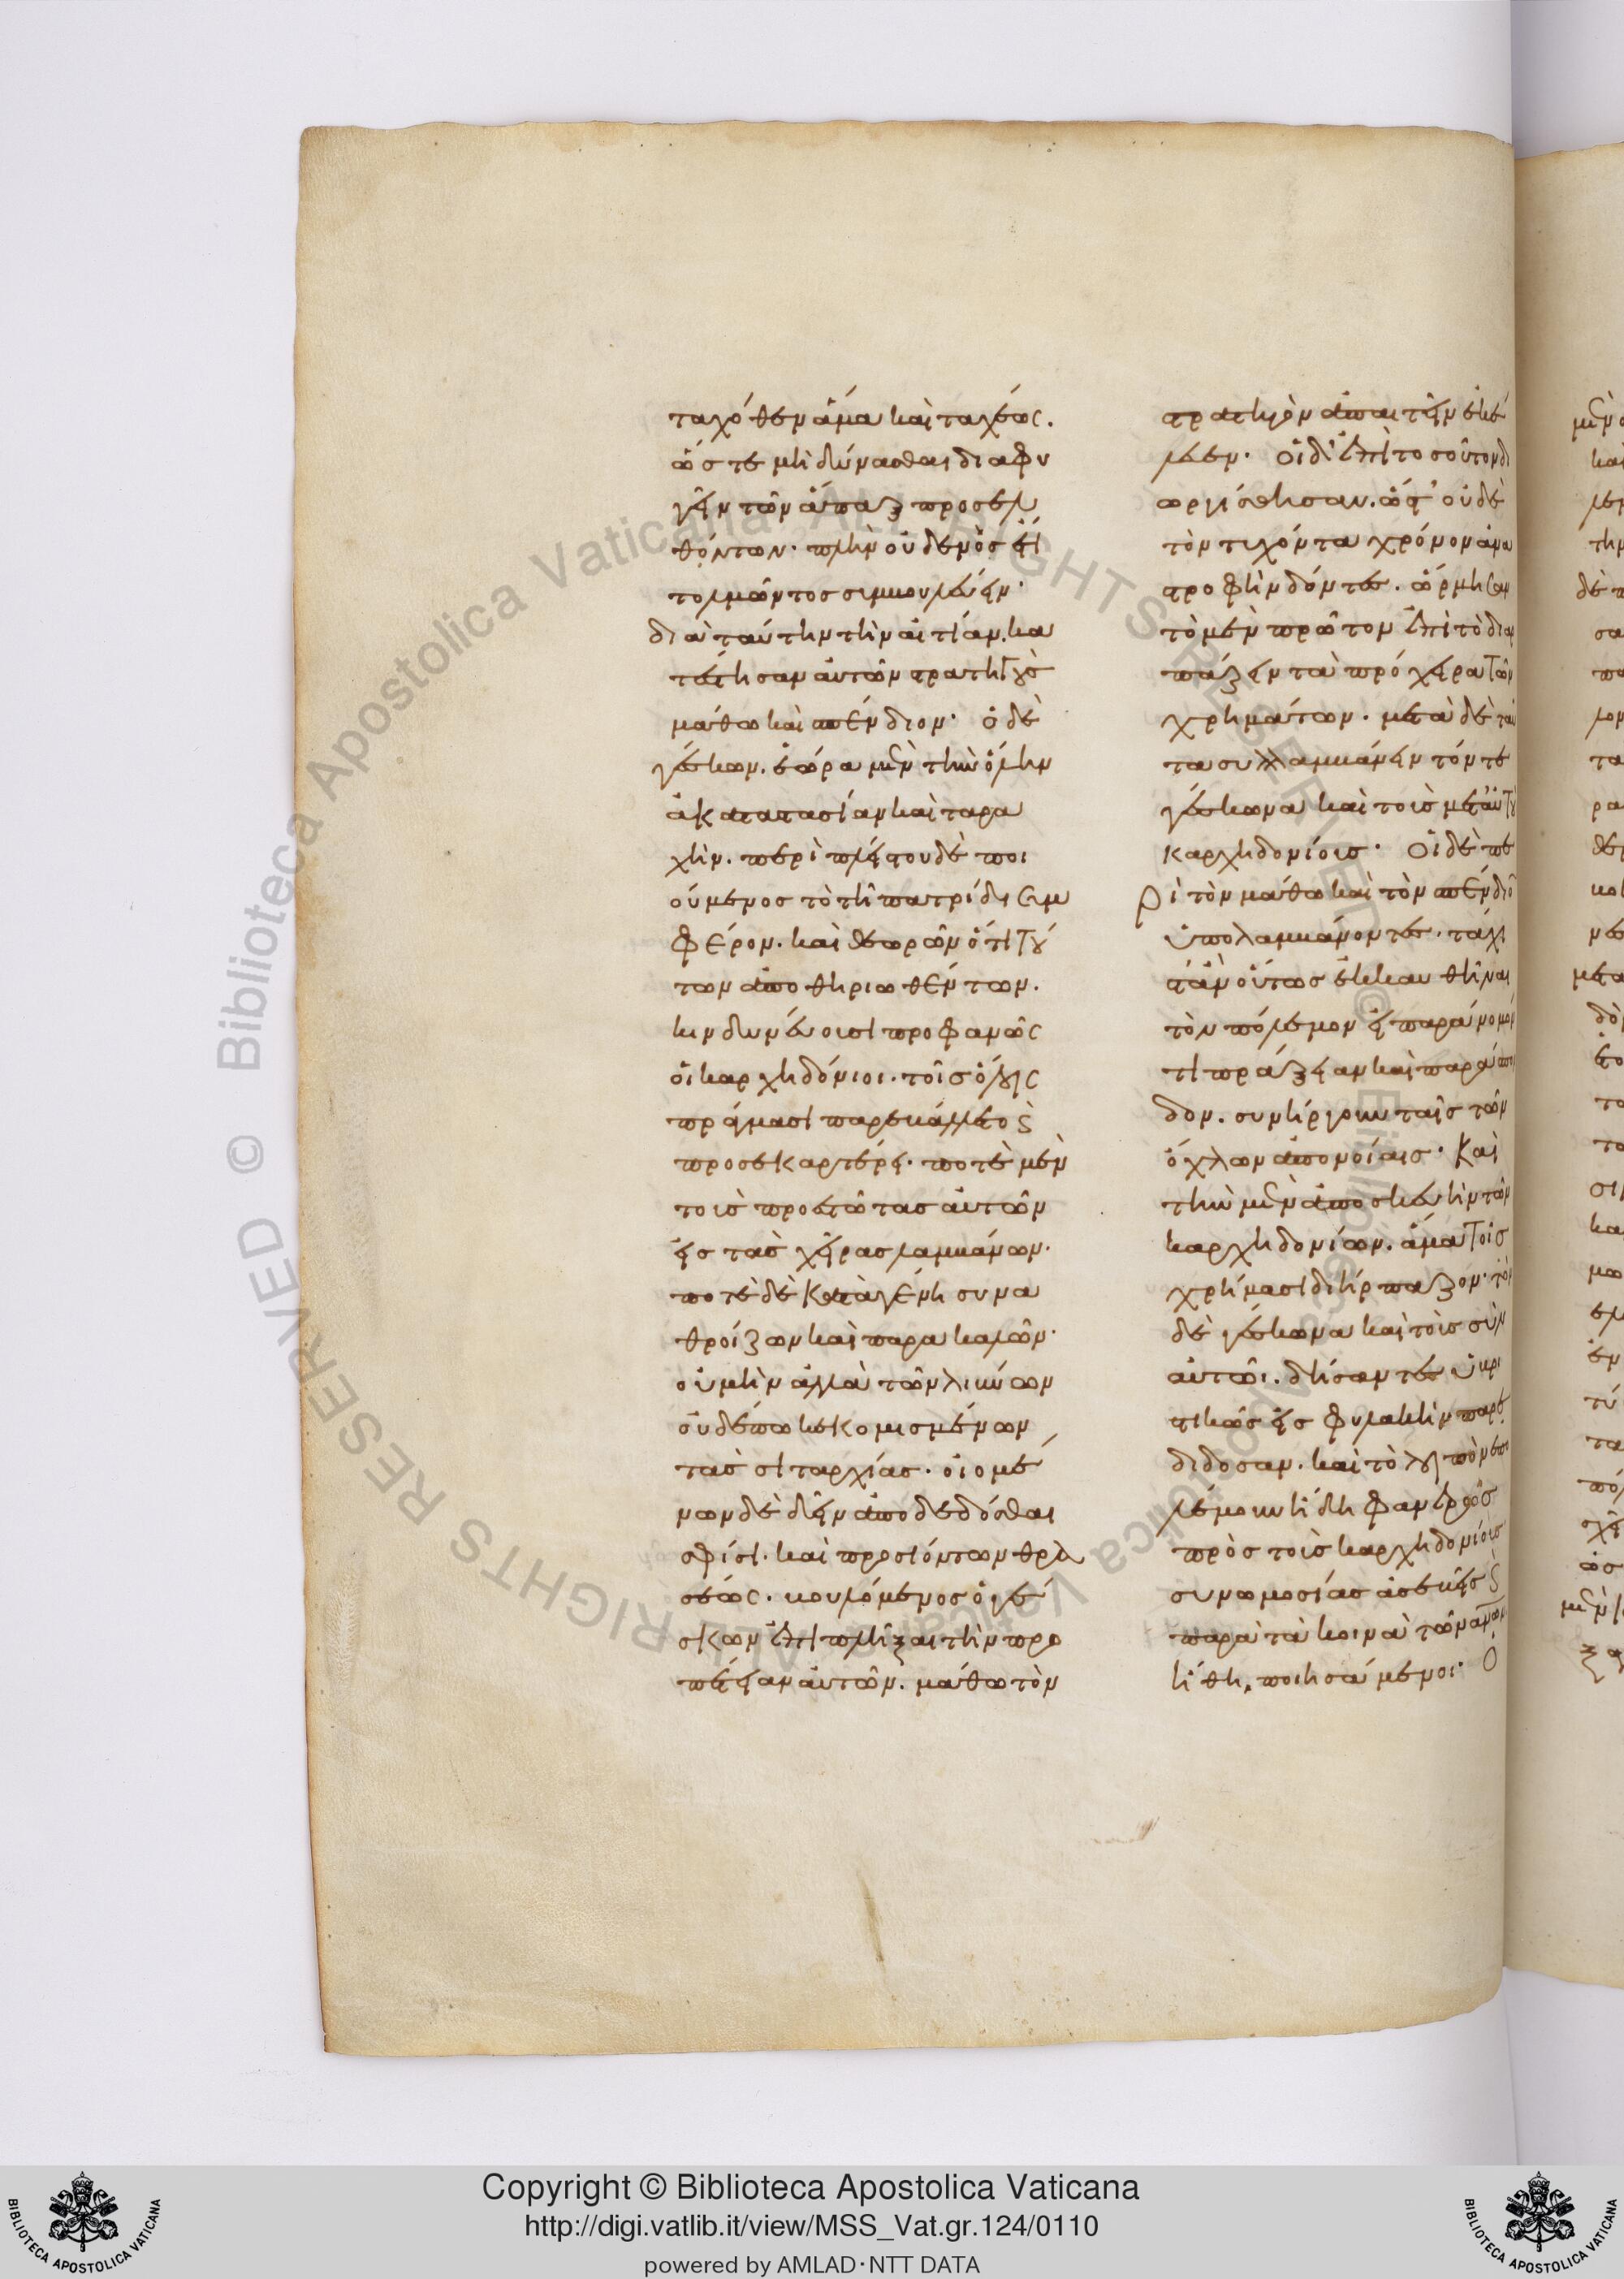 ταχόθεν ἅμα καὶ ταχέως.
ὥστε μὴ δύνασθαι διαφυ
γεῖν τῶν ἅπαξ προσελ
θόντων· πλὴν οὐδενὸς ἔτι
τολμῶντος συμβουλεύειν·
διὰ ταύτην τὴν αἰτίαν. κα
τέστησαν αὑτῶν στρατηγοὺς
μάθω καὶ σπένδιον· ὁ δὲ
γέσκων. ἑώρα μὲν τὴν ὅλην
ἀκαταστασίαν καὶ ταρα
χήν. περὶ πλείστου δὲ ποι
ούμενος τὸ τῆι πατρίδι συμ
φέρον. καὶ θεωρῶν ὅτι τού
των ἀποθηριωθέντων.
κινδυνεύουσι προφανῶς
οἱ καρχηδόνιοι. τοῖς ὅλοις
πράγμασι παρεβάλλετο καὶ
προσεκαρτέρει. ποτὲ μὲν
τοὺς προεστῶτας αὐτῶν
εἰς τὰς χεῖρας λαμβάνων·
ποτὲ δὲ κατὰ γένη συνα
θροίζων καὶ παρακαλῶν·
οὐ μὴν ἀλλὰ τῶν λιβύων
οὐδέπω κεκομισμένων
τὰς σιταρχίας. οἰομέ
νων δὲ δεῖν ἀποδεδόσθαι
σφίσι. καὶ προσιόντων θρα
σέως. βουλόμενος ὁ γέ
σκων ἐπιπλῆξαι τὴν προ
πέτειαν αὐτῶν. μάθω τὸν
στρατηγὸν ἀπαιτεῖν ἐκέ
λευεν. οἱ δ' ἐπὶ τοσοῦτον δι
ωργίσθησαν. ὥστ' οὐδὲ
τὸν τυχόντα χρόνον ἀνα
στροφὴν δόντες. ὥρμησαν
τὸ μὲν πρῶτον ἐπὶ τὸ διαρ
πάζειν τὰ πρόχειρα τῶν
χρημάτων. μετὰ δὲ ταῦ
τα συλλαμβάνειν τόν τε
γέσκωνα καὶ τοὺς μετ' αὐτοῦ
καρχηδονίους. οἱ δὲ πε
ρὶ τὸν μάθω καὶ τὸν σπένδιον
ὑπολαμβάνοντες. τάχι
στ' ἂν οὕτως ἐκκαυθῆναι
τὸν πόλεμον εἰ παράνομόν
τι πράξειαν καὶ παράσπον
δον. συνήργουν ταῖς τῶν
ὄχλων ἀπονοίαις. καὶ
τὴν μὲν ἀποσκευὴν τῶν
καρχηδονίων. ἅμα τοῖς
χρήμασι διήρπαζον. τὸν
δὲ γέσκωνα καὶ τοὺς σὺν
αὐτῶι. δήσαντες ὑβρι
στικῶς εἰς φυλακὴν παρε
δίδοσαν. καὶ τὸ λοιπὸν ἐπο
λέμουν ἤδη φανερῶς
πρὸς τοὺς καρχηδονίους
συνωμοσίας ἀσεβεῖς καὶ
παρὰ τὰ κοινὰ τῶν ἀνθρώπων
ἤθη. ποιησάμενοι. Ὁ
Copyright © Biblioteca Apostolica Vaticana
http://digi.vatlib.it/view/MSS_Vat.gr.124/0110
powered by AMLAD·NTT DATA